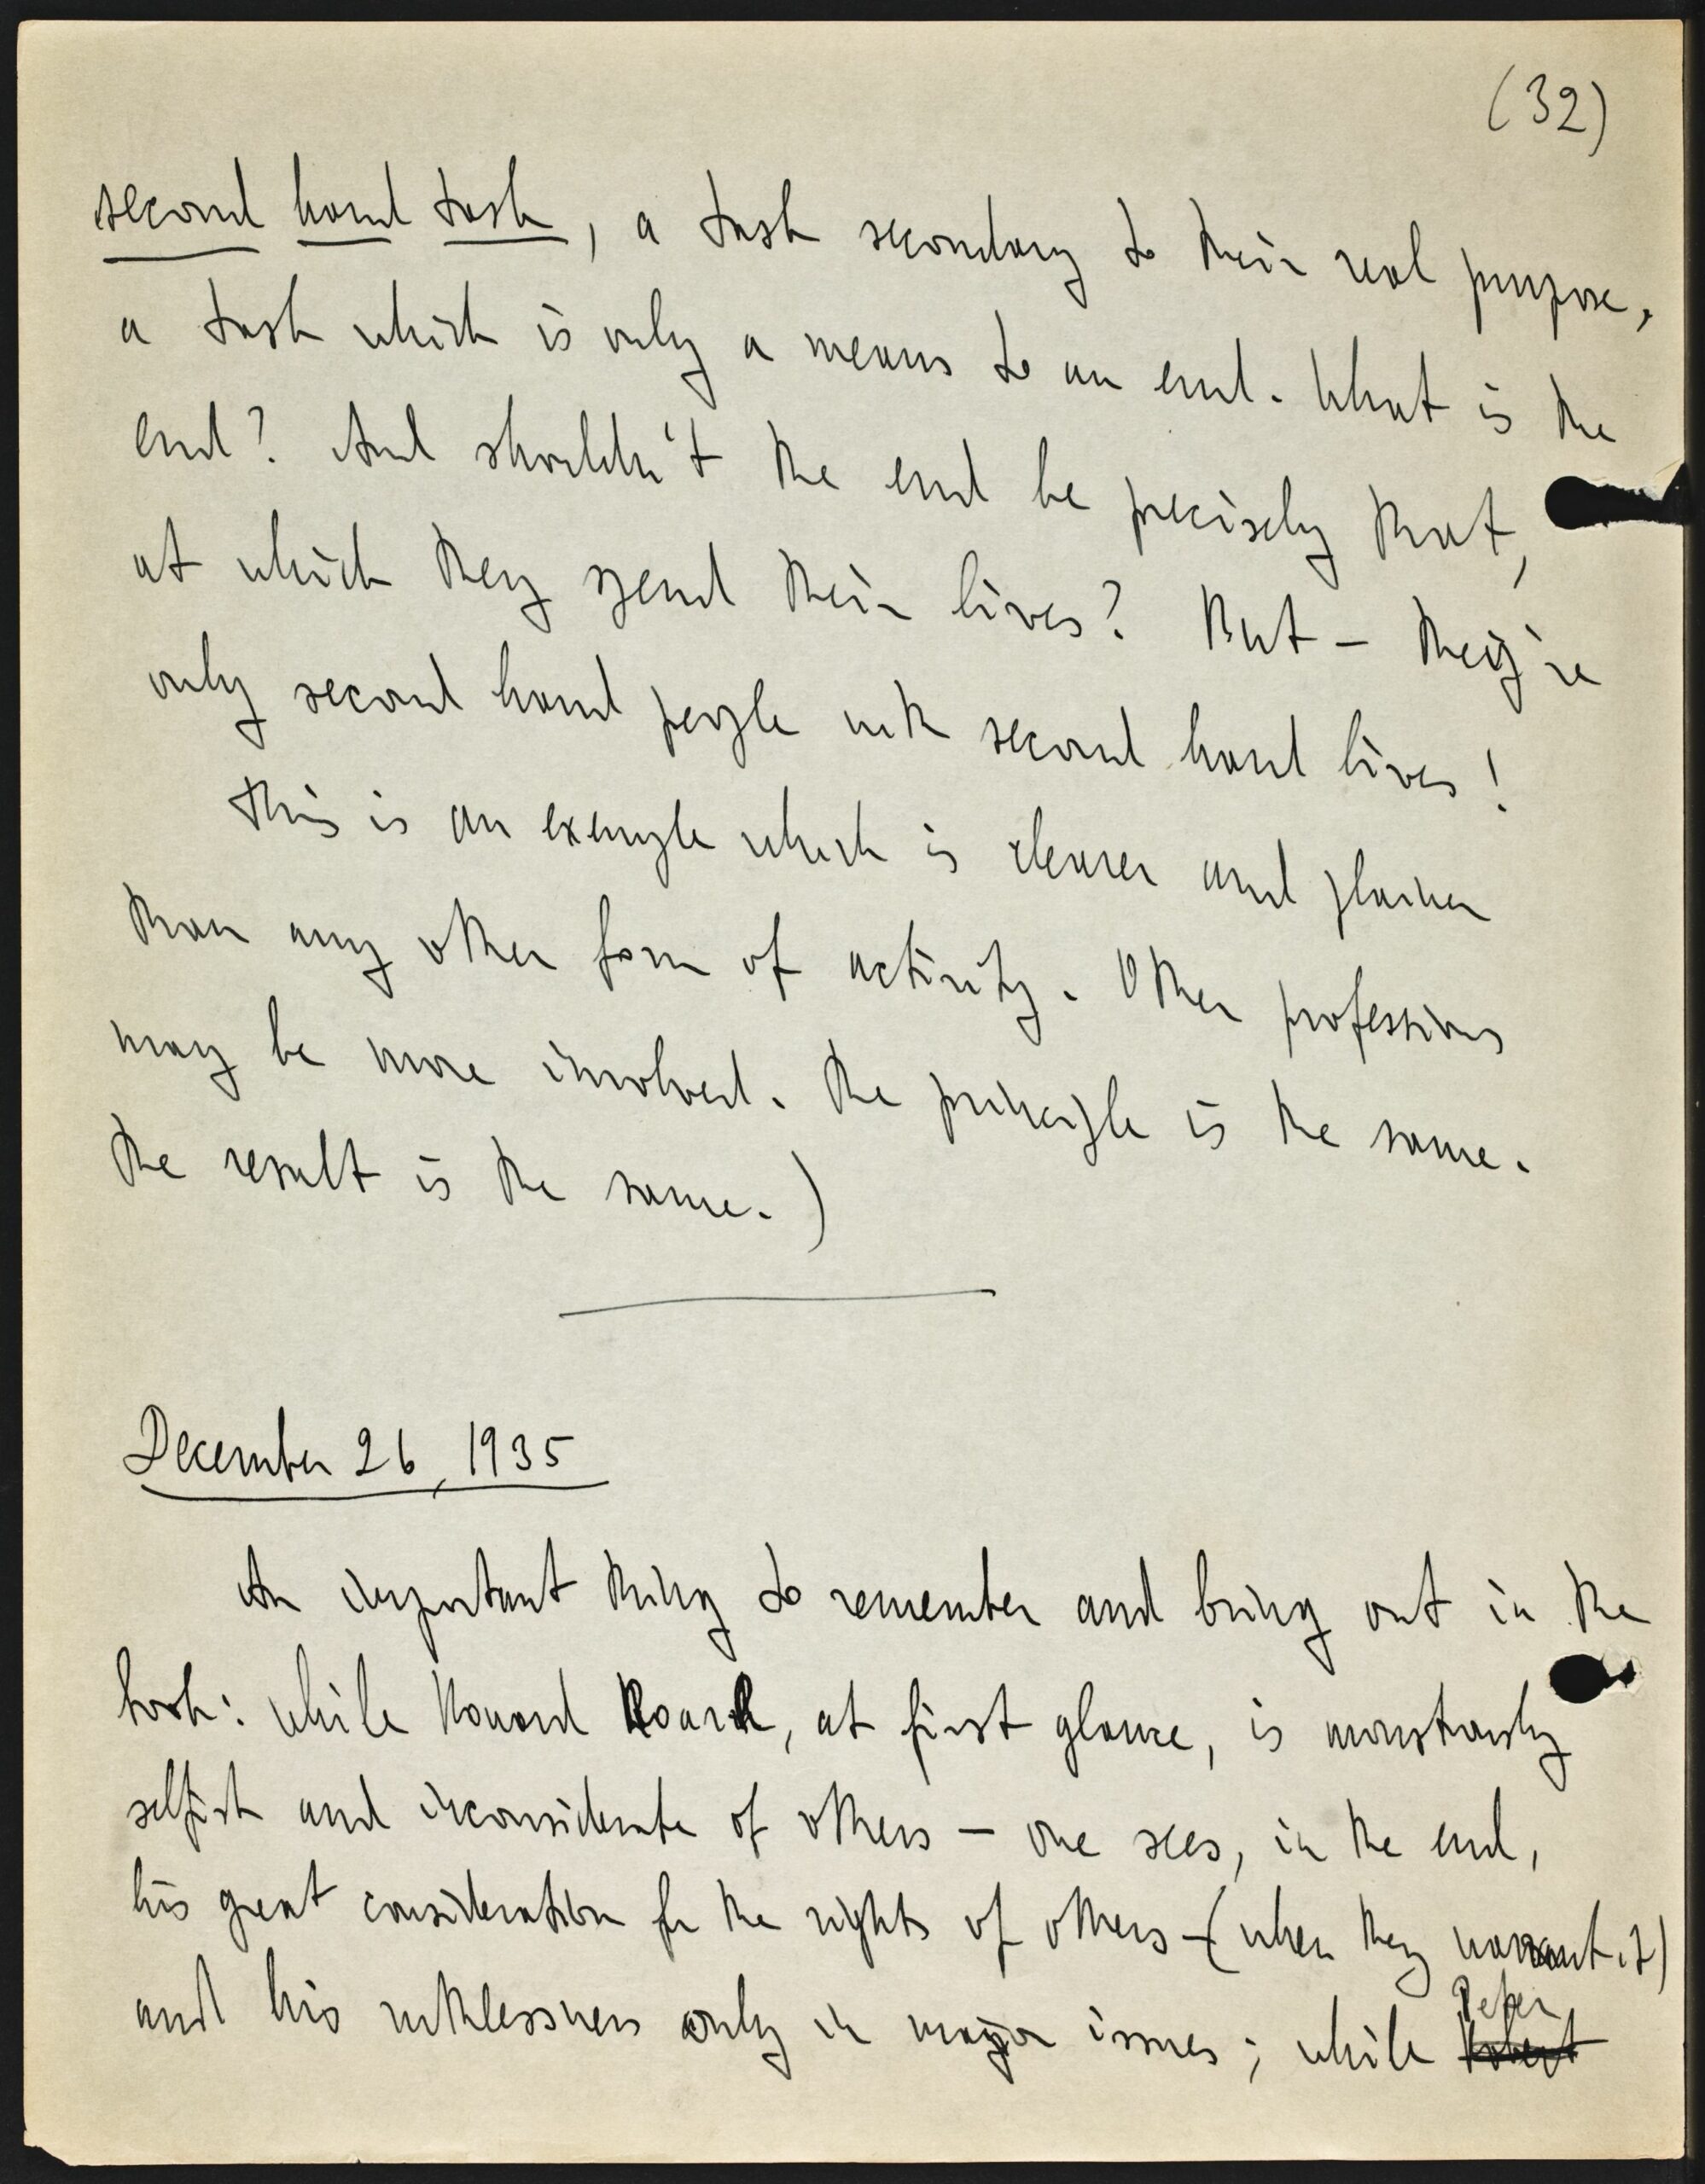 (32)
second hand task, a task secondary to their real purpose,
a task which is only a means to an end. What is the
end? And shouldn't the end be precisely that,
at which they spend their lives? But — they're
only second hand people with second hand lives!
This is an example which is clearer and plainer
than any other form of activity. Other professions
may be more involved. The principle is the same.
The result is the same.)
December 26, 1935
An important thing to remember and bring out in the
book: while Howard Roark, at first glance, is monstrously
selfish and inconsiderate of others — one sees, in the end,
his great consideration for the rights of others — (when they warrant it)
and his ruthlessness only in major issues; while Peter
Robert